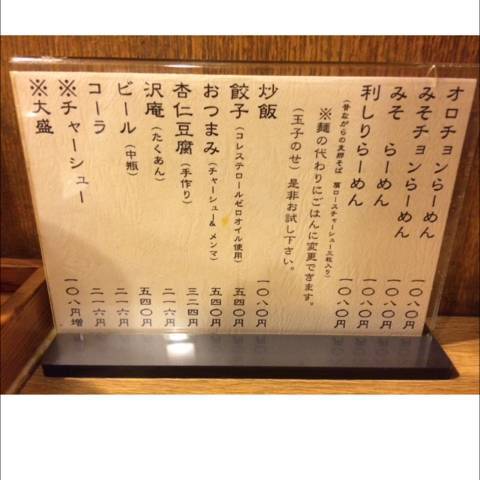 オロチョンらーめん 一〇八〇円
みそチョンらーめん 一〇八〇円
みそ らーめん 一〇八〇円
利しりらーめん 一〇八〇円
(昔ながらの支那そば ロースチャーシュー三枚入り)
※麺の代わりにごはんに変更できます。
(玉子のせ)是非お試し下さい。
炒飯 一〇八〇円
餃子(コレステロールゼロオイル使用) 五四〇円
おつまみ(チャーシュー& メンマ) 五四〇円
杏仁豆腐(手作り) 三二四円
沢庵(たくあん) 二一六円
ビール(中瓶) 五四〇円
コーラ 二一六円
※チャーシュー 二一六円
※大盛 一〇八円増